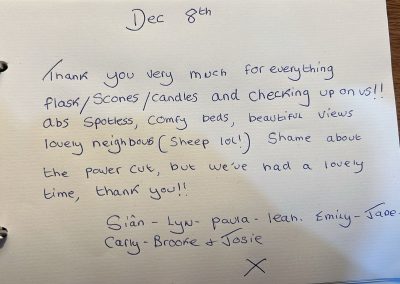 Dec 8th
Thank you very much for everything
flask/Scones/candles and checking up on us!!
abs Spotless, Comfy beds, beautiful views
lovely neighbous (Sheep lol!) Shame about
the power cut, but we've had a lovely
time, thank you!!
Siân - Lyn - paula - leah. Emily - Jade -
Carly - Brooke & Josie
X